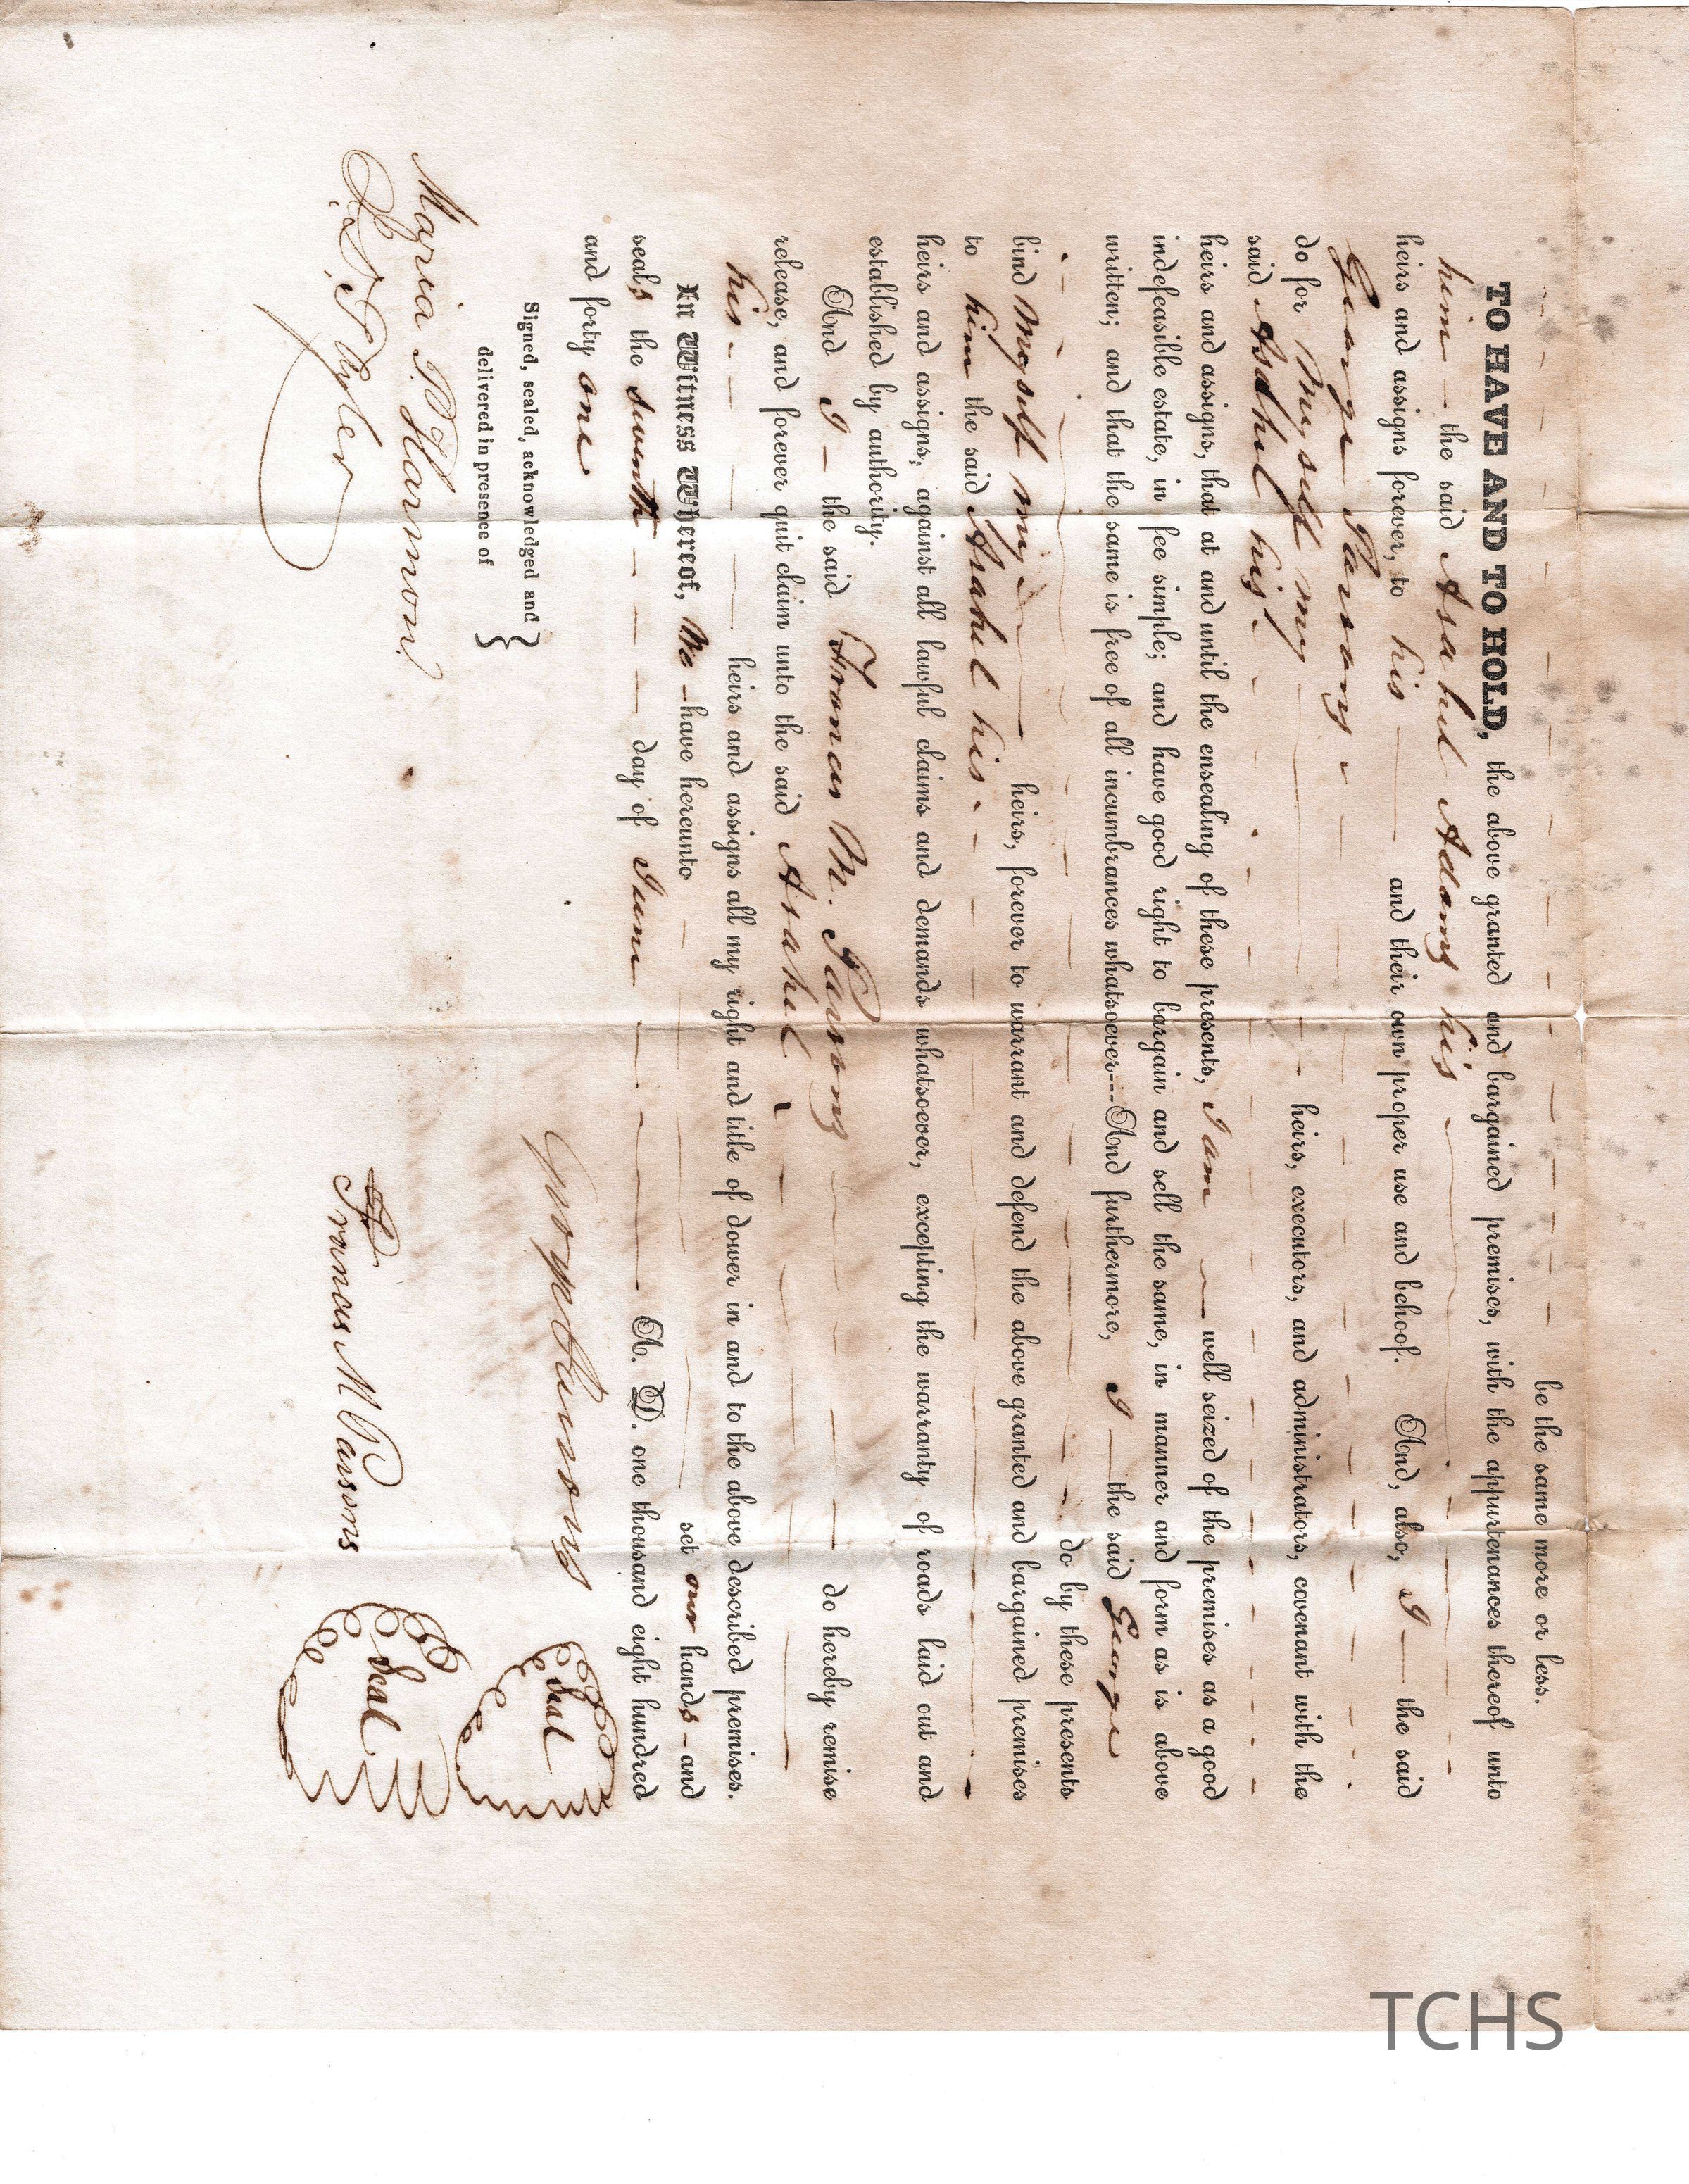 be the same more or less.
TO HAVE AND TO HOLD, the above granted and bargained premises, with the appurtenances thereof unto
him - the said Asahel Adams his
heirs and assigns forever, to his and their own proper use and behoof. And, also, I the said
George Parsons
do for Myself my heirs, executors, and administrators, covenant with the
said Asahel his
heirs and assigns, that at and until the ensealing of these presents, I am well seized of the premises as a good
indefeasible estate, in fee simple; and have good right to bargain and sell the same, in manner and form as is above
written; and that the same is free of all incumbrances whatsoever---And furthermore, I the said George
do by these presents
bind Myself my heirs, forever to warrant and defend the above granted and bargained premises
to him the said Asahel his
heirs and assigns, against all lawful claims and demands whatsoever, excepting the warranty of roads laid out and
established by authority.
And I - the said Frances M. Parsons do hereby remise
release, and forever quit claim unto the said Asahel
his - heirs and assigns all my right and title of dower in and to the above described premises.
In Witness Whereof, We - have hereunto set our hands - and
seals the seventh day of June A. D. one thousand eight hundred
and forty one
Signed, sealed, acknowledged and
delivered in presence of
Geo Parsons
Seal
Maria P. Harmon
Frances M Parsons
Seal
Tyler
TCHS